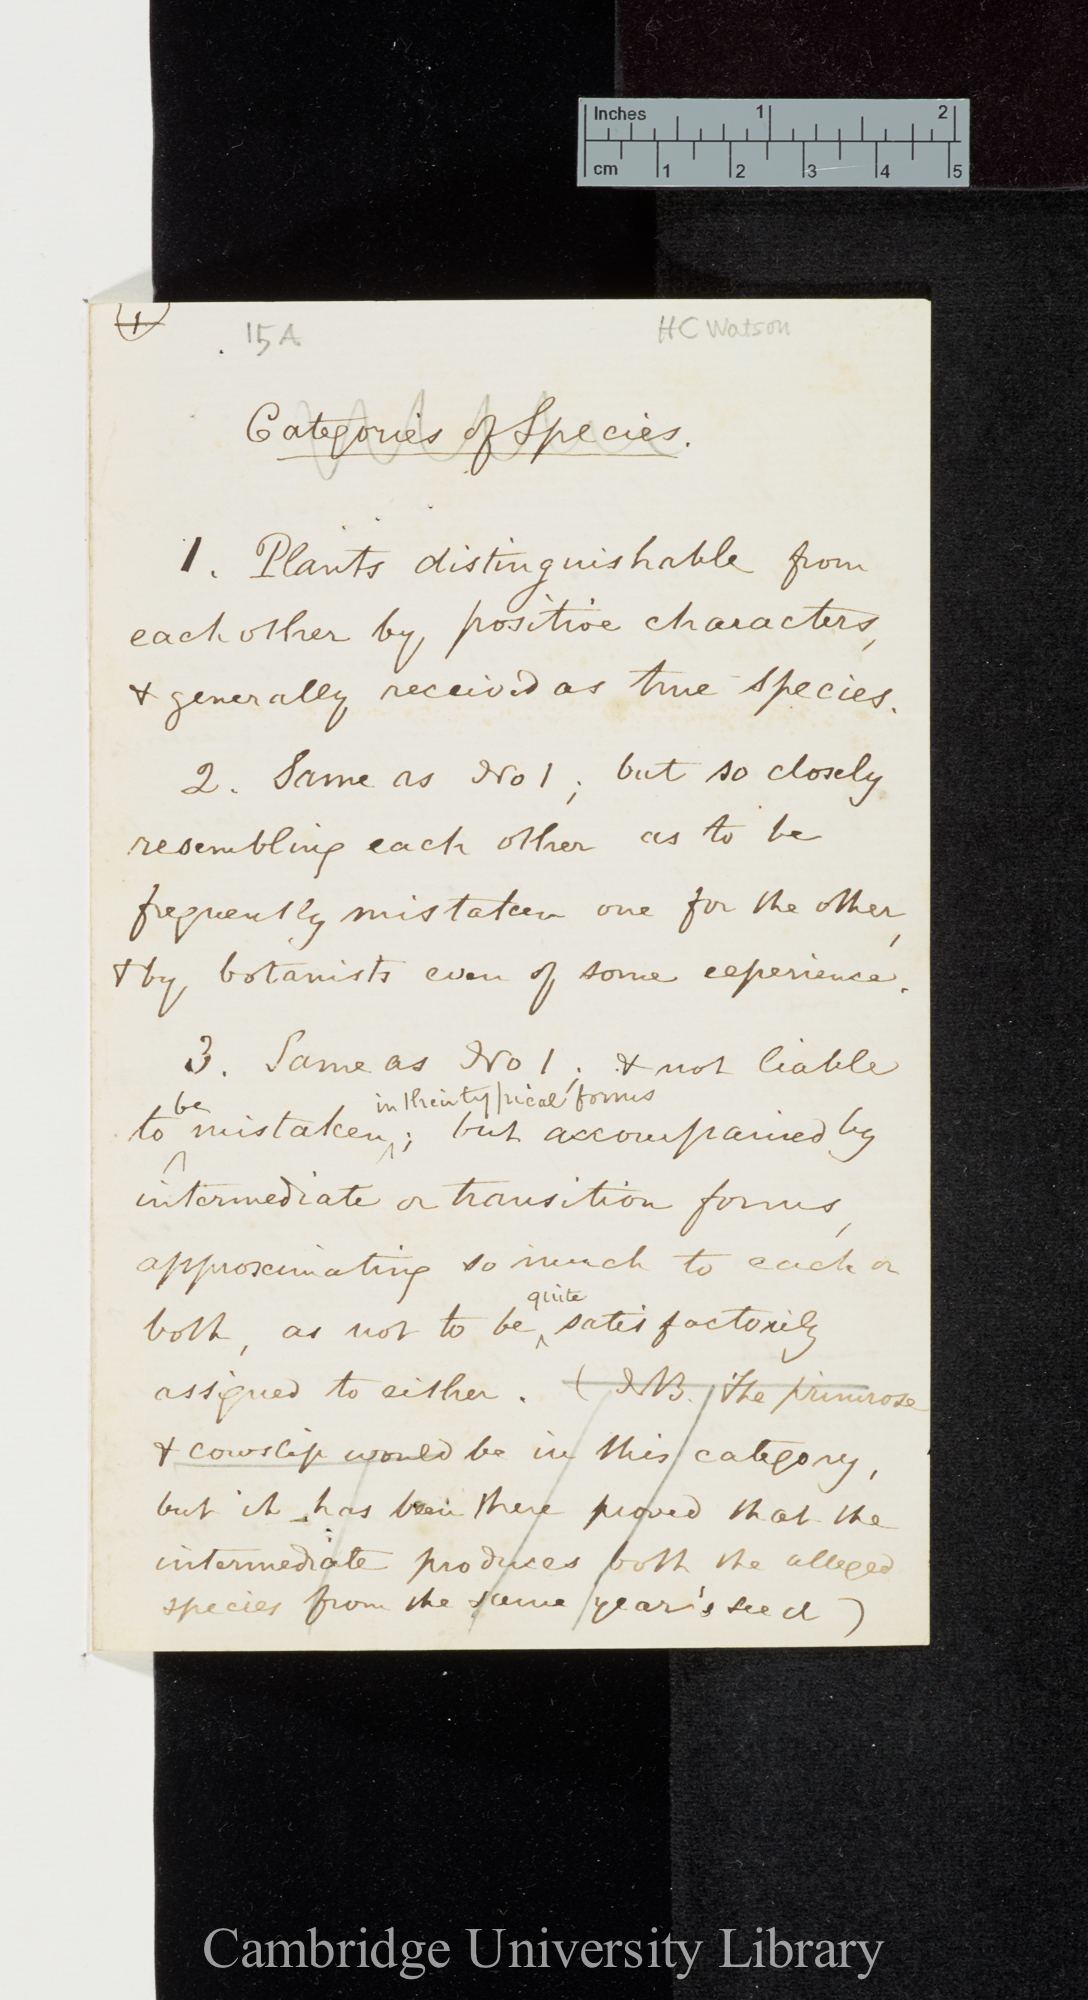 Inches 1 2
cm 1 2 3 4 5
1
15A
HC Watson
Categories of Species.
1. Plants distinguishable from
each other by positive characters,
& generally received as true species.
2. Same as No 1; but so closely
resembling each other as to be
frequently mistaken one for the other,
& by botanists even of some experience.
3. Same as No 1; & not liable
be in their typical forms
to mistaken; but accompanied by
intermediate or transition forms,
approximating so much to each or
quite
both, as not to be satisfactorily
assigned to either. (NB. The primrose
& cowslip would be in this category,
but it has been there proved that the
intermediate produces both the alleged
species from the same year's seed)
Cambridge University Library